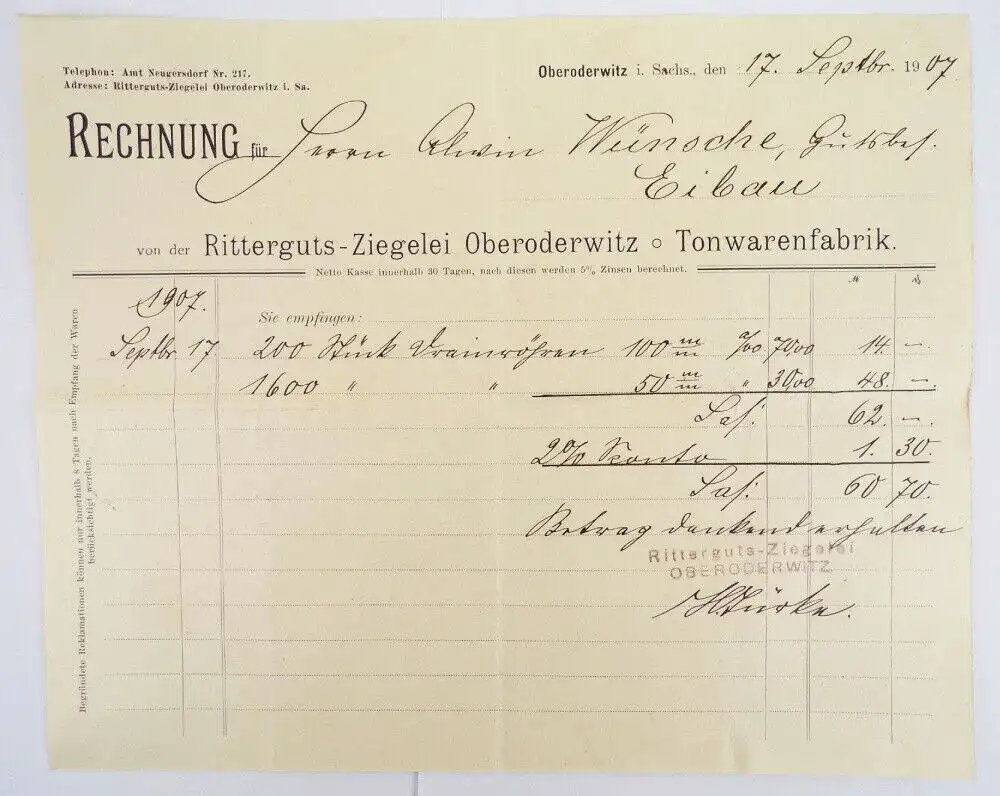 Telephon: Amt Neugersdorf Nr. 217.
Adresse: Ritterguts-Ziegelei Oberoderwitz i. Sa.
Oberoderwitz i. Sachs., den 17. Septbr. 1907.
RECHNUNG für Herrn Alwin Wünsche, Gutsbes.
Eibau
von der Ritterguts-Ziegelei Oberoderwitz ○ Tonwarenfabrik.
Netto Kasse innerhalb 30 Tagen, nach diesen werden 5% Zinsen berechnet.
M ₰
1907. Sie empfingen:
Septbr. 17 200 Stück Drainröhren 100 m/m %00 70,00 14. —.
1600 " " 50 m/m " 30,00 48. —.
Sa: 62. —.
2% Sconto 1. 30.
Sa: 60 70.
Betrag dankend erhalten
Ritterguts-Ziegelei
OBERODERWITZ.
Begründete Reklamationen können nur innerhalb 8 Tagen nach Empfang der Waren
berücksichtigt werden.